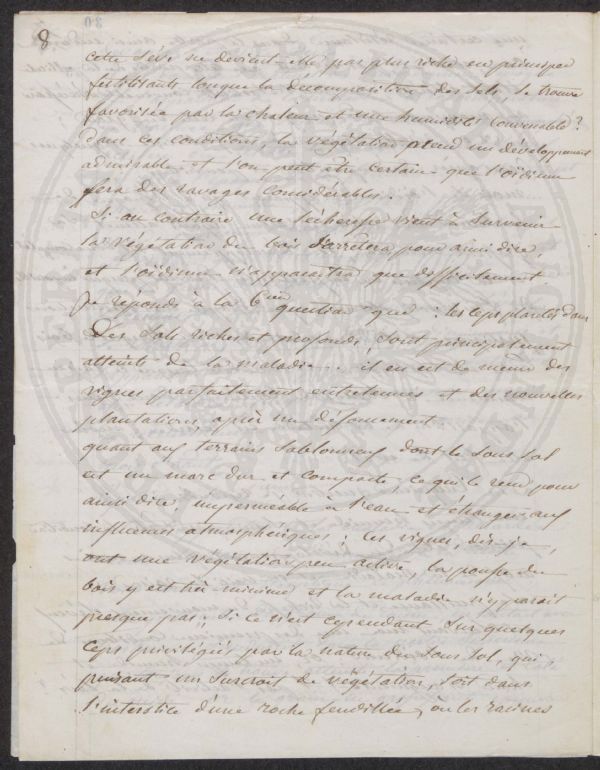 8
cette sève ne devient-elle pas plus riche en principes
fertilisants lorsque la décomposition des sels, se trouve
favorisée par la chaleur et une humidité convenable?
dans ces conditions, la végétation prend un développement
admirable et l'on peut être certain que l'oïdium
fera des ravages considérables.
Si au contraire une sécheresse vient à survenir
la végétation du bois s'arrêtera pour ainsi dire,
et l'oïdium n'apparaîtra que difficilement
Je réponds à la 6me question que : les ceps plantés dans
Des sols riches et profonds, sont principalement
atteints de la maladie. il en est de même des
vignes parfaitement entretenues et des nouvelles
plantations, après un défoncement.
quant aux terrains sablonneux dont le sous sol
est un marc dur et compacte, ce qui le rend pour
ainsi dire, imperméable à l'eau et étranger aux
influences atmosphériques; ces vignes, dis-je,
ont une végétation peu active, la pousse du
bois y est très minime et la maladie n'y parait
presque pas, si ce n'est cependant sur quelques
ceps privilégiés par la nature du sous sol, qui,
puisant un surcroit de végétation, soit dans
l'interstice d'une roche fendillée, où les racines